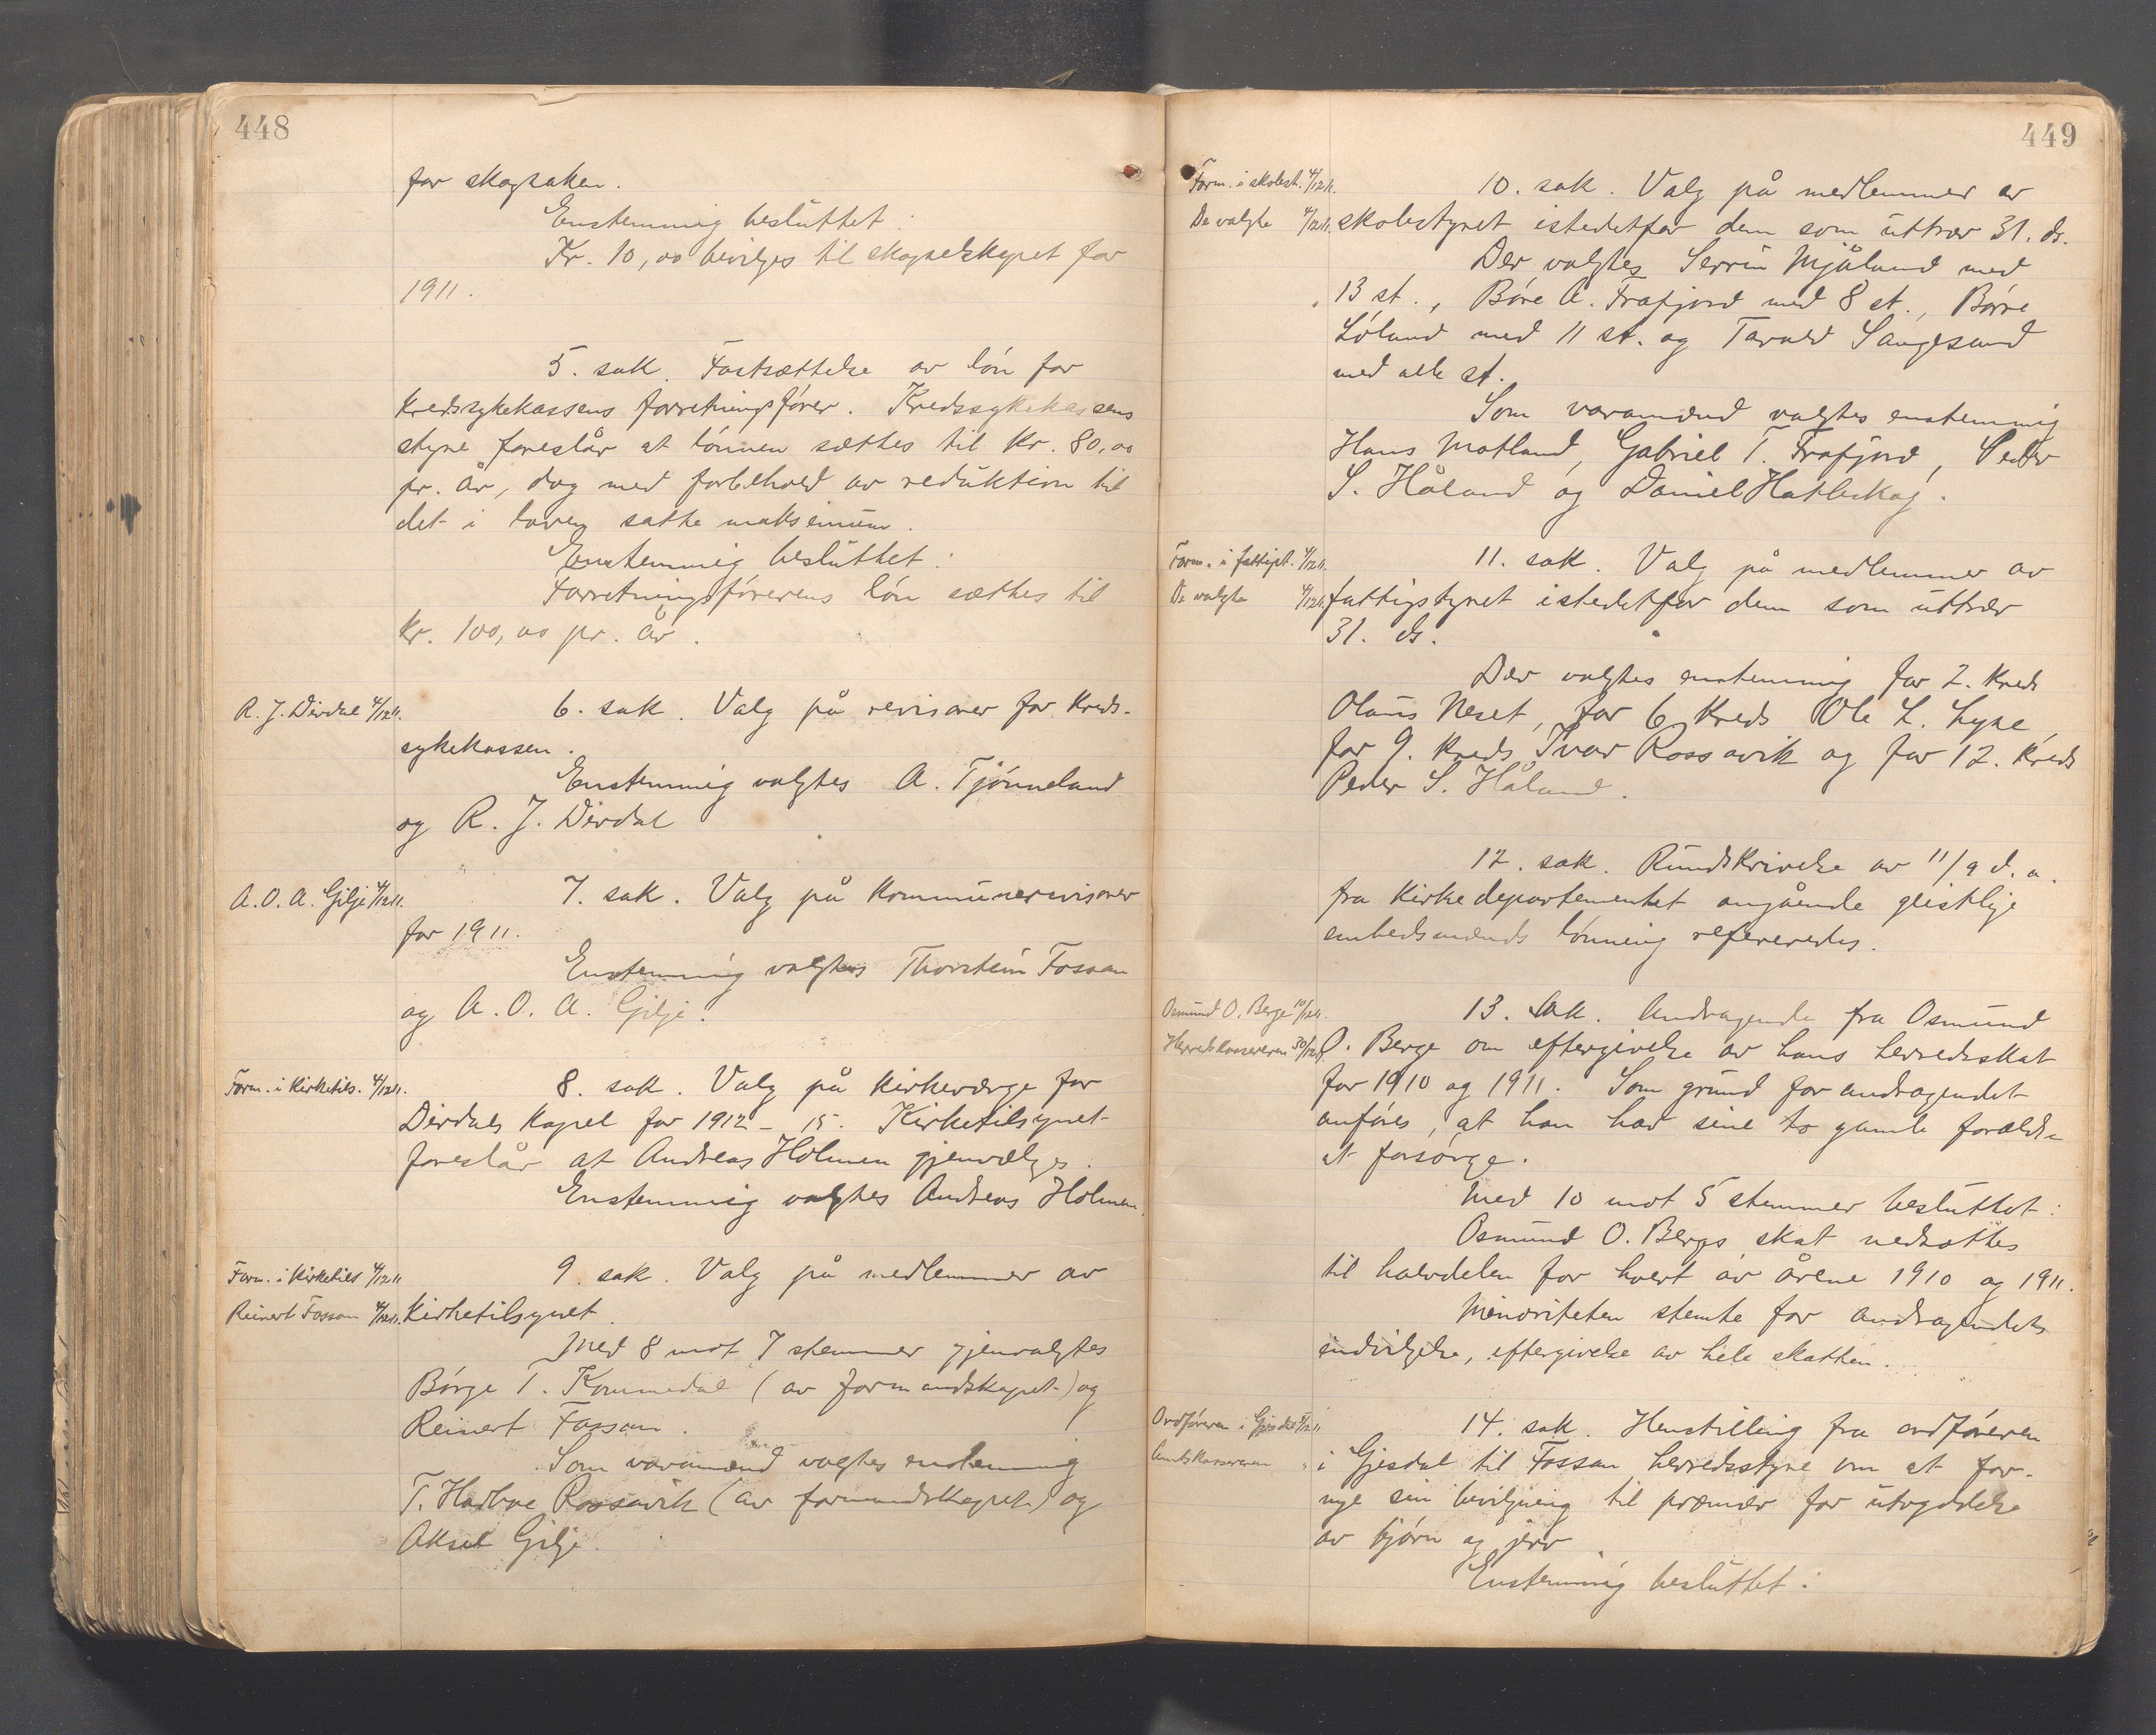 448
for skogsaken.
Enstemmig besluttet:
Kr. 10,00 bevilges til skogselskapet for
1911.
5. sak. Fastsættelse av løn for
kredssykekassens forretningsfører. Kredssykekassens
styre foreslår at lønnen sættes til kr. 80,00
pr. år, dog med forbehold av reduktion til
det i loven satte maksimum.
Enstemmig besluttet:
Forretningsførerens løn sættes til
kr. 100,00 pr. år.
R. J. Dirdal 4/12 11.
6. sak. Valg på revisorer for kreds-
sykekassen.
Enstemmig valgtes A. Tjønneland
og R. J. Dirdal
A. O. A. Gilje 4/12 11.
7. sak. Valg på kommunerevisorer
for 1911.
Enstemmig valgtes Thorstein Fossan
og A. O. A. Gilje.
Form. i kirketils. 4/12 11.
8. sak. Valg på kirkeværge for
Dirdals kapel for 1912 - 15. Kirketilsynet
foreslår at Andreas Holmen gjenvælges.
Enstemmig valgtes Andreas Holmen.
Form. i kirketils 4/12 11
9. sak. Valg på medlemmer av
Reinert Fossan 4/12 11. kirketilsynet.
Med 8 mot 7 stemmer gjenvalgtes
Børge T. Kommedal (av formandskapet) og
Reinert Fossan.
Som varamænd valgtes enstemmig
T. Hadboe Rossavik (av formandskapet) og
Aksel Gilje.
449
Form. i skolest. 4/12 11.
10. sak. Valg på medlemmer av
De valgte 4/12 11. skolestyret istedetfor dem som uttrær 31. ds.
Der valgtes Serrin Mjåland med
13 st., Børe A. Frafjord med 8 st., Børre
Løland med 11 st. og Tarald Sangesand
med alle st.
Som varamænd valgtes enstemmig
Hans Motland, Gabriel T. Frafjord, Peder
S. Håland og Daniel Hatleskog.
Form. i fattigst. 4/12 11.
11. sak. Valg på medlemmer av
De valgte 4/12 11. fattigstyret istedetfor dem som uttrær
31. ds.
Der valgtes enstemmig for 2. kreds
Olaus Neset, for 6 kreds Ole L. Lyse,
for 9. kreds Ivar Rossavik og for 12. kreds
Peder S. Håland.
12. sak. Rundskrivelse av 11/9 d. a.
fra Kirkedepartementet angående geistlige
embedsmænds lønning refereredes.
Osmund O. Berge 10/12 11.
13. sak. Andragende fra Osmund
Herredskassereren 30/12 11. O. Berge om eftergivelse av hans herredsskat
for 1910 og 1911. Som grund for andragendet
anføres, at han har sine to gamle forældre
at forsørge.
Med 10 mot 5 stemmer besluttet:
Osmund O. Berges skat nedsættes
til halvdelen for hvert av årene 1910 og 1911.
Minoriteten stemte for andragendets
indvilgelse, eftergivelse av hele skatten.
Ordføreren i Gjesdal
14. sak. Henstilling fra ordføreren
Amtskassereren " i Gjesdal til Fossan herredsstyre om at for-
nye sin bevilgning til præmier for utryddelse
av bjørn og jerv.
Enstemmig besluttet: